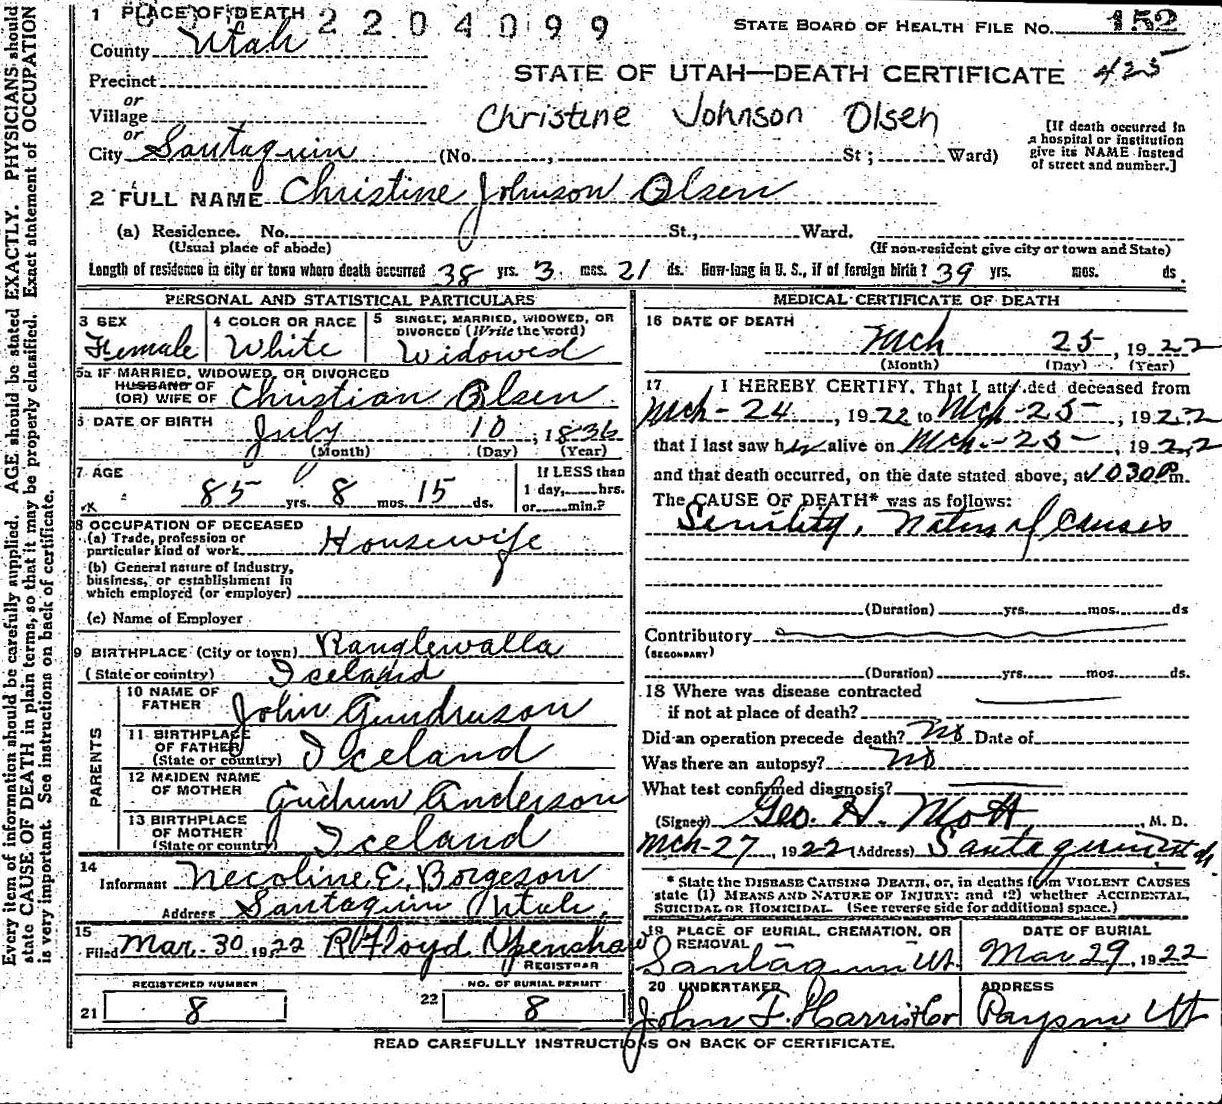 1 PLACE OF DEATH 2204099
STATE BOARD OF HEALTH FILE No. 152
County Utah
STATE OF UTAH—DEATH CERTIFICATE 425
Precinct
or
Village
Christine Johnson Olsen
or
City Santaquin (No. , St ; Ward)
[If death occurred in a hospital or institution give its NAME instead of street and number.]
2 FULL NAME Christine Johnson Olsen
(a) Residence. No. St., Ward.
(Usual place of abode) (If non-resident give city or town and State)
Length of residence in city or town where death occurred 38 yrs. 3 mos. 21 ds. How long in U. S., if of foreign birth? 39 yrs. mos. ds.
PERSONAL AND STATISTICAL PARTICULARS
3 SEX Female
4 COLOR OR RACE White
5 SINGLE, MARRIED, WIDOWED, OR DIVORCED (Write the word)
Widowed
5a IF MARRIED, WIDOWED, OR DIVORCED
HUSBAND OF
(OR) WIFE OF Christian Olsen
6 DATE OF BIRTH July 10, 1836
(Month) (Day) (Year)
7 AGE 85 yrs. 8 mos. 15 ds.
If LESS than
1 day, hrs.
or min.?
8 OCCUPATION OF DECEASED
(a) Trade, profession or
particular kind of work Housewife
(b) General nature of Industry,
business, or establishment in
which employed (or employer)
(c) Name of Employer
9 BIRTHPLACE (City or town) Ranglewalla
(State or country) Iceland
PARENTS
10 NAME OF FATHER John Gundruson
11 BIRTHPLACE OF FATHER (State or country) Iceland
12 MAIDEN NAME OF MOTHER Gudrun Anderson
13 BIRTHPLACE OF MOTHER (State or country) Iceland
14 Informant Necoline E. Borgeson
Address Santaquin Utah.
15 Filed Mar. 30 1922 R Floyd Openshaw
REGISTRAR
REGISTERED NUMBER
21 8
NO. OF BURIAL PERMIT
22 8
MEDICAL CERTIFICATE OF DEATH
16 DATE OF DEATH
Mch 25, 1922
(Month) (Day) (Year)
17 I HEREBY CERTIFY, That I attended deceased from
Mch-24, 1922 to Mch-25-, 1922
that I last saw her alive on Mch.-25-, 1922
and that death occurred, on the date stated above, at 1030P m.
The CAUSE OF DEATH* was as follows:
Senility, Natural Causes
(Duration) yrs. mos. ds
Contributory
(SECONDARY)
(Duration) yrs. mos. ds.
18 Where was disease contracted
if not at place of death?
Did an operation precede death? No Date of
Was there an autopsy? No
What test confirmed diagnosis?
(Signed) Geo. H. Mott, M. D.
Mch-27, 1922 (Address) Santaquin
* State the DISEASE CAUSING DEATH, or, in deaths from VIOLENT CAUSES
state (1) MEANS AND NATURE OF INJURY; and (2) whether ACCIDENTAL,
SUICIDAL OR HOMICIDAL. (See reverse side for additional space.)
19 PLACE OF BURIAL, CREMATION, OR REMOVAL
Santaquin Ut.
DATE OF BURIAL
Mar 29, 1922
20 UNDERTAKER
John F. Harris
ADDRESS
Payson Ut
READ CAREFULLY INSTRUCTIONS ON BACK OF CERTIFICATE.
Every item of information should be carefully supplied. AGE should be stated EXACTLY. PHYSICIANS should
state CAUSE OF DEATH in plain terms, so that it may be properly classified. Exact statement of OCCUPATION
is very important. See instructions on back of certificate.